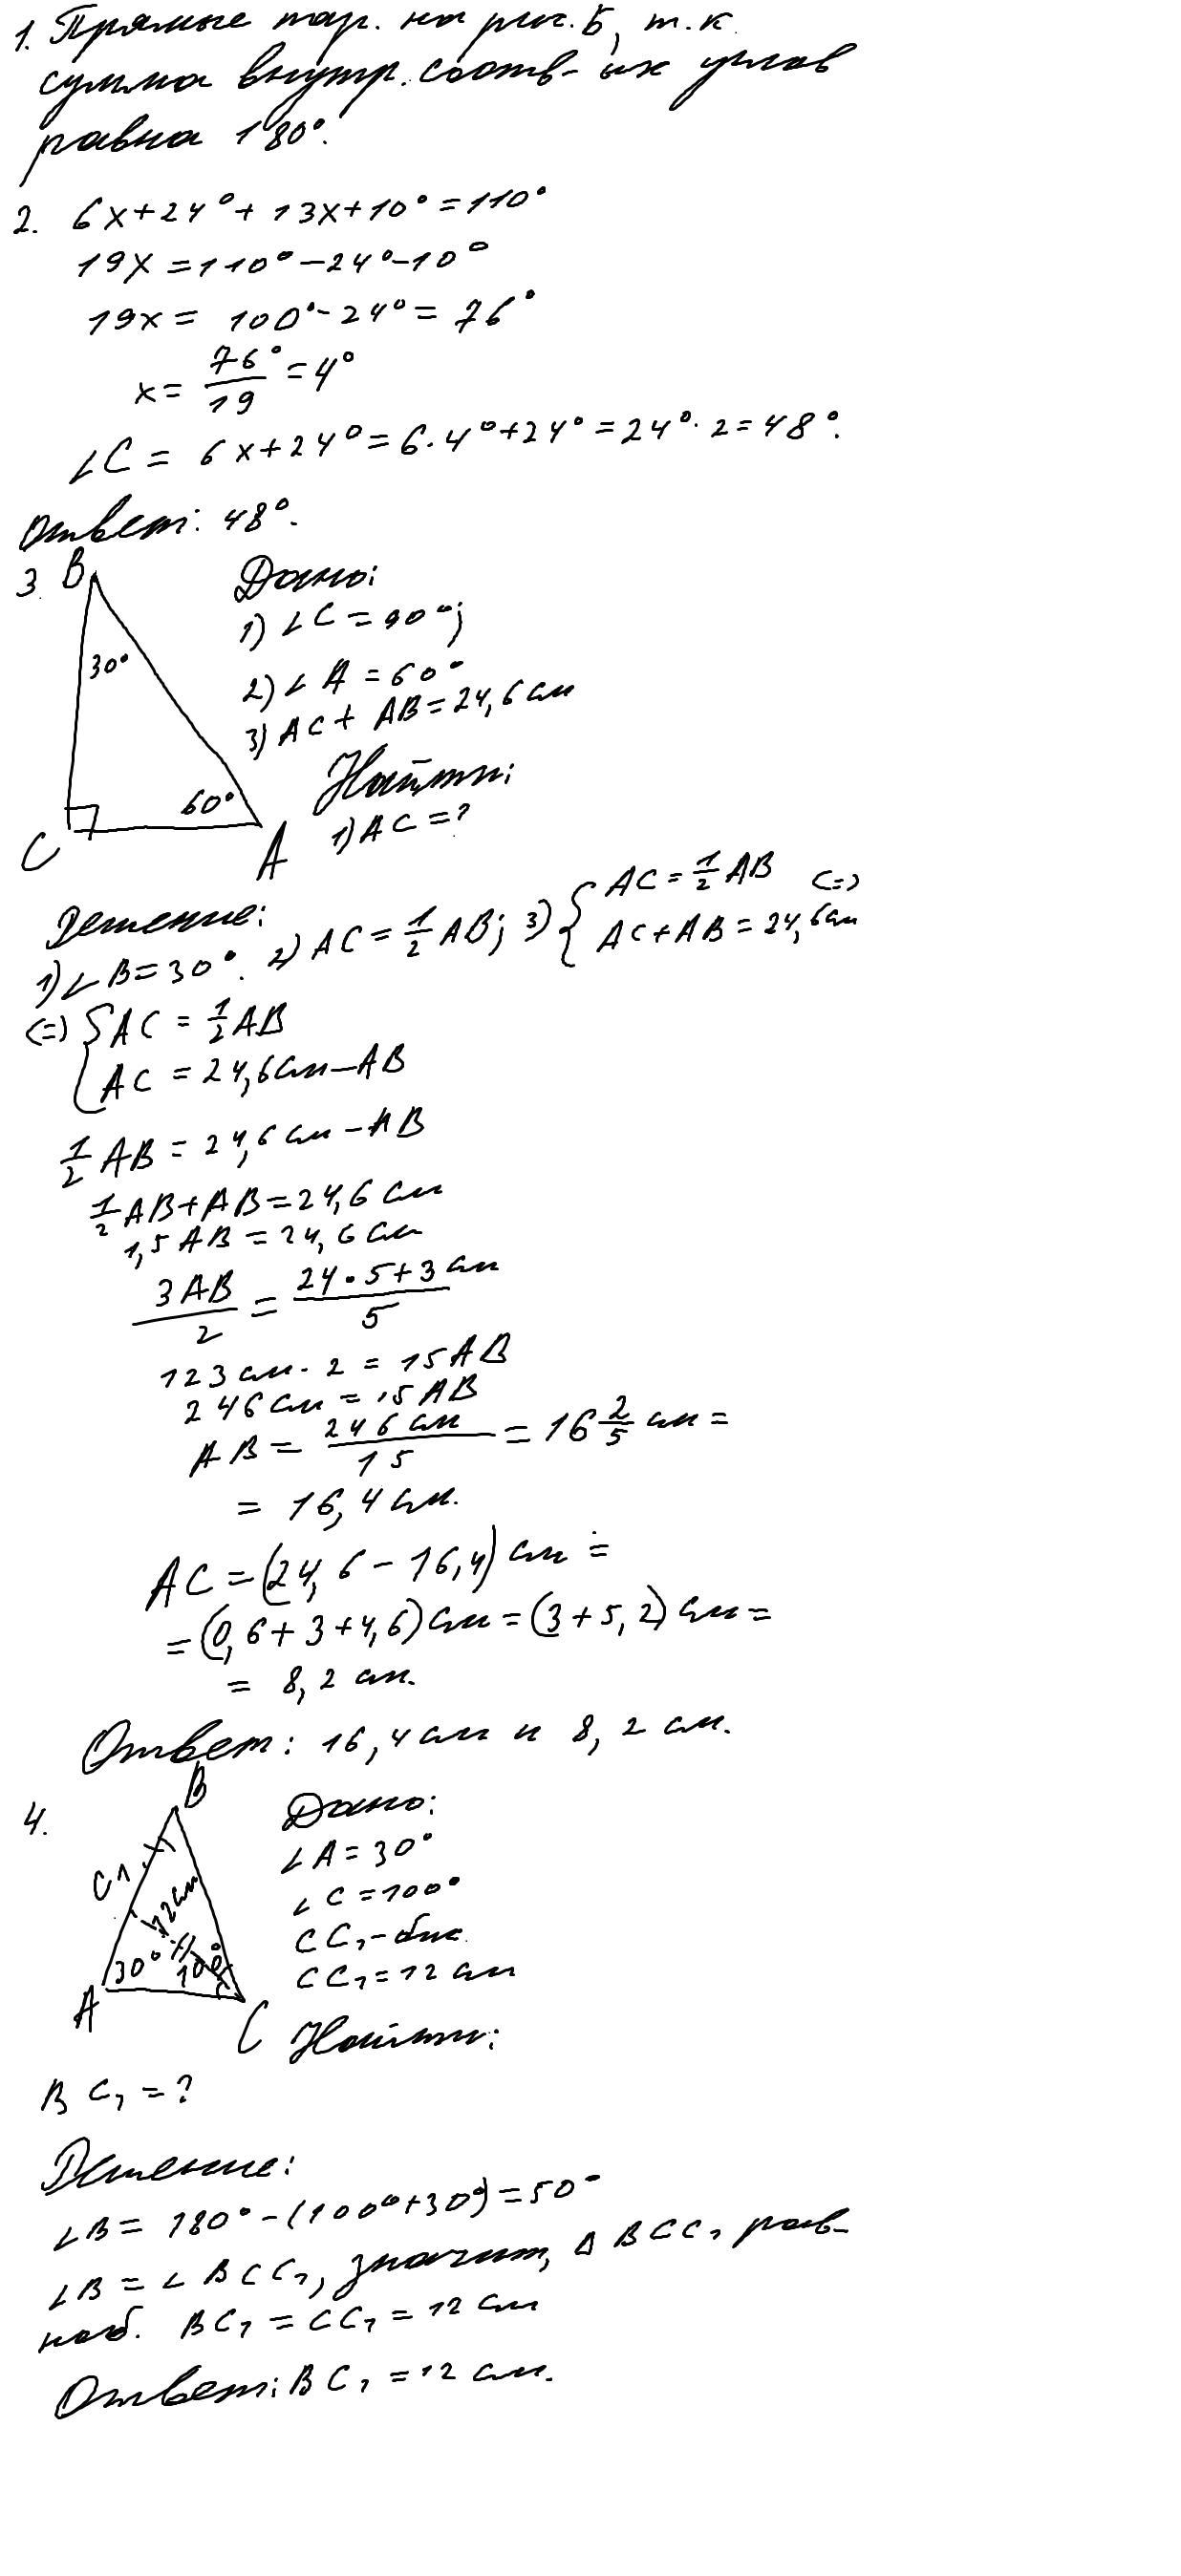 1. Прямые пар. на рис. Б, т.к.
сумма внутр. соотв-их углов
равна 180°.
2. 6x+24°+13x+10°=110°
19x=110°-24°-10°
19x= 100°-24°=76°
x=76°/19=4°
∠C= 6x+24°=6·4°+24°=24°·2=48°.
Ответ: 48°.
3. B
30°
60°
C
A
Дано:
1) ∠C=90°;
2) ∠A=60°
3) AC+AB=24,6см
Найти:
1) AC=?
Решение:
1) ∠B=30°. 2) AC=1/2AB; 3) { AC=1/2AB <=>
AC+AB=24,6см
<=> { AC=1/2AB
AC=24,6см-AB
1/2AB=24,6см-AB
1/2AB+AB=24,6см
1,5AB=24,6см
3AB/2=24·5+3/5 см
123см·2=15AB
246см=15AB
AB=246см/15=16 2/5 см=
= 16,4см.
AC=(24,6-16,4)см=
=(0,6+3+4,6)см=(3+5,2)см=
= 8,2см.
Ответ: 16,4см и 8,2см.
4.
B
C1
12см
30°
100°
A
C
Дано:
∠A=30°
∠C=100°
CC1-бис.
CC1=12см
Найти:
BC1=?
Решение:
∠B=180°-(100°+30°)=50°
∠B=∠BCC1, значит, ΔBCC1 рав-
ноб. BC1=CC1=12см
Ответ: BC1=12см.